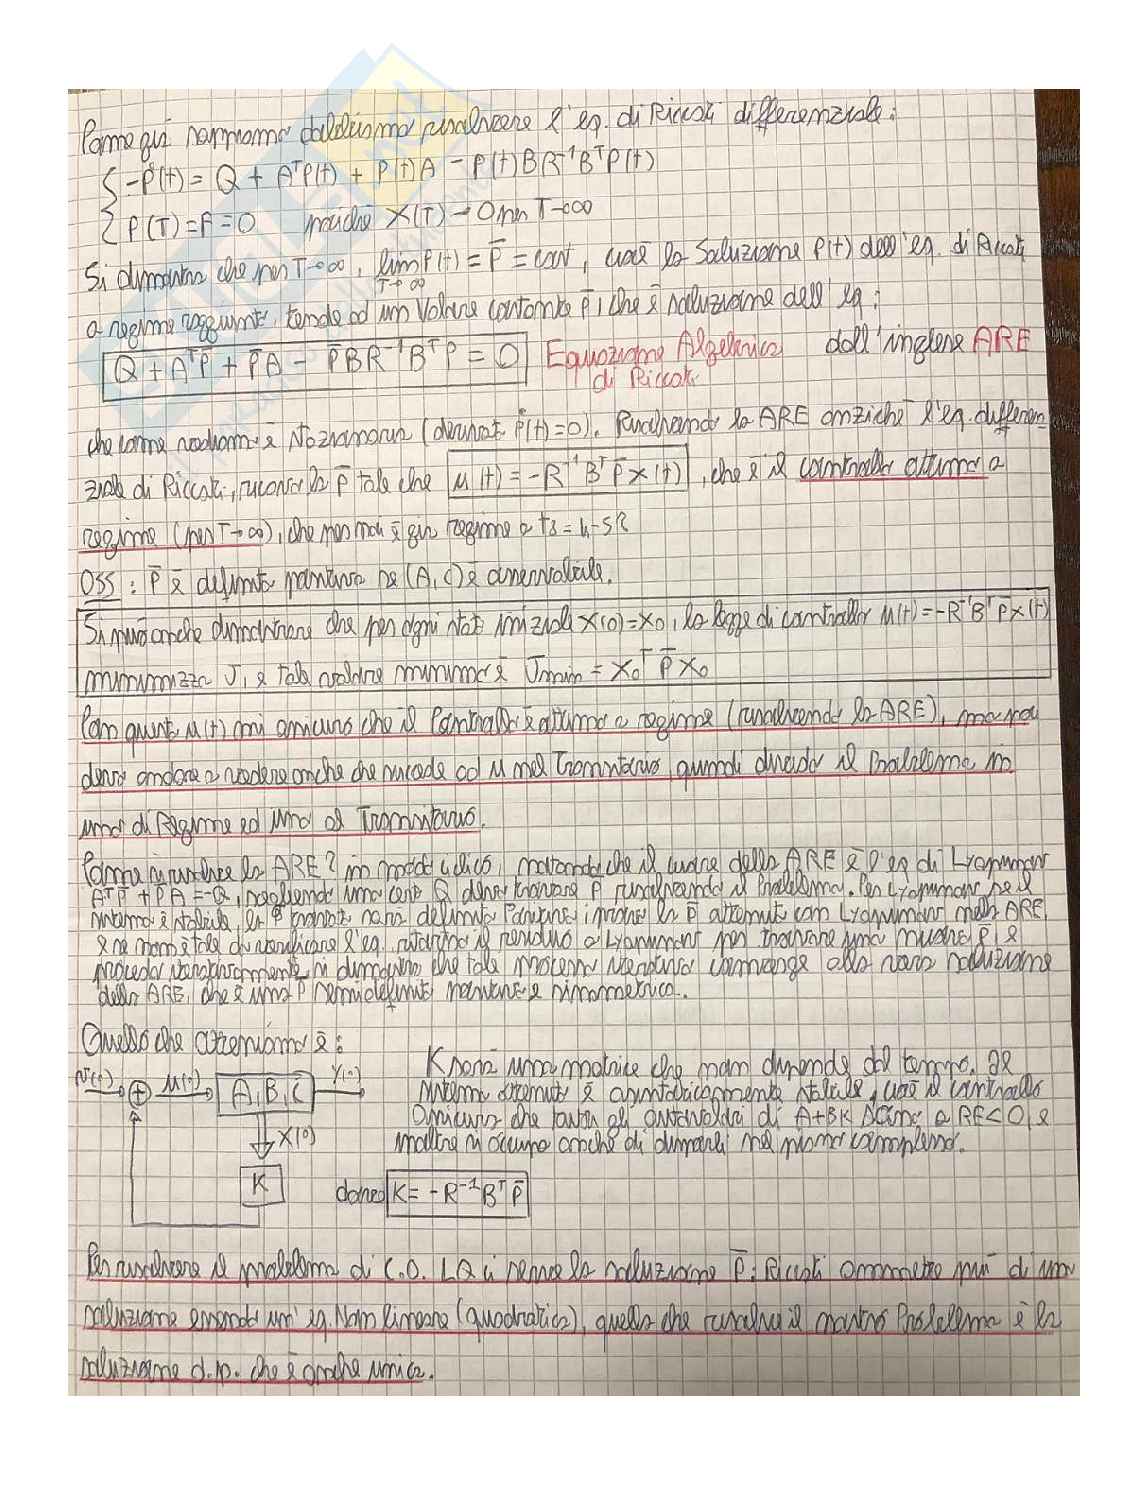 Come già sappiamo dobbiamo risolvere l'eq. di Riccati differenziale:
{ -Ṗ(t) = Q + AᵀP(t) + P(t)A - P(t)BR⁻¹BᵀP(t)
{ P(T) = F = 0 poiché X(T)→0 per T→∞
Si dimostra che per T→∞, lim P(t) = P̄ = cost, cioè la Soluzione P(t) dell'eq. di Riccati
T→∞
a regime raggiunto, tende ad un Valore costante P̄, che è soluzione dell'eq:
Q + AᵀP̄ + P̄A - P̄BR⁻¹BᵀP̄ = 0 Equazione Algebrica dall'inglese ARE
di Riccati
che come vediamo è Stazionaria (derivata Ṗ(t)=0). Risolvendo la ARE anziché l'eq. differen
ziale di Riccati, ricavo la P̄ tale che u(t) = -R⁻¹BᵀP̄x(t), che è il controllo ottimo a
regime (per T→∞), che per noi è già regime a ts = 4-5τ
OSS: P̄ è definita positiva se (A,C) è osservabile.
Si può anche dimostrare che per ogni stato iniziale X(0)=X0, la legge di controllo u(t)=-R⁻¹BᵀP̄x(t)
minimizza J, e tale valore minimo è Jmin = X0ᵀP̄X0
Con questa u(t) mi assicuro che il Controllo è ottimo a regime (risolvendo la ARE), ma poi
devo andare a vedere anche che succede ad u nel Transitorio, quindi divido il Problema in
uno di Regime ed uno al Transitorio.
Come si risolve la ARE? in modo ciclico, notando che il cuore della ARE è l'eq di Lyapunov
AᵀP̄ + P̄A = -Q, scegliendo una certa Q devo trovare P risolvendo il Problema. Per Lyapunov se il
sistema è stabile, la P trovata sarà definita Positiva; provo la P̄ ottenuta con Lyapunov nella ARE,
e se non è tale da verificare l'eq. sfrutto il residuo a Lyapunov per trovare una nuova P̄, e
procedo iterativamente, si dimostra che tale processo iterativo converge alla vera soluzione
della ARE, che è una P semidefinita positiva e simmetrica.
Quello che otteniamo è:
K sarà una matrice che non dipende dal tempo. Il
V(·) + u(·) A,B,C Y(·)
sistema ottenuto è asintoticamente stabile, cioè il controllo
assicura che tutti gli autovalori di A+BK siano a RE<0, e
X(·)
inoltre si occupa anche di disporli nel piano complesso.
K dove K = -R⁻¹BᵀP̄
Per risolvere il problema di C.O. LQ ci serve la soluzione P̄: Riccati ammette più di una
soluzione essendo un'eq. Non lineare (quadratica), quella che risolve il nostro Problema è la
soluzione d.p. che è anche unica.